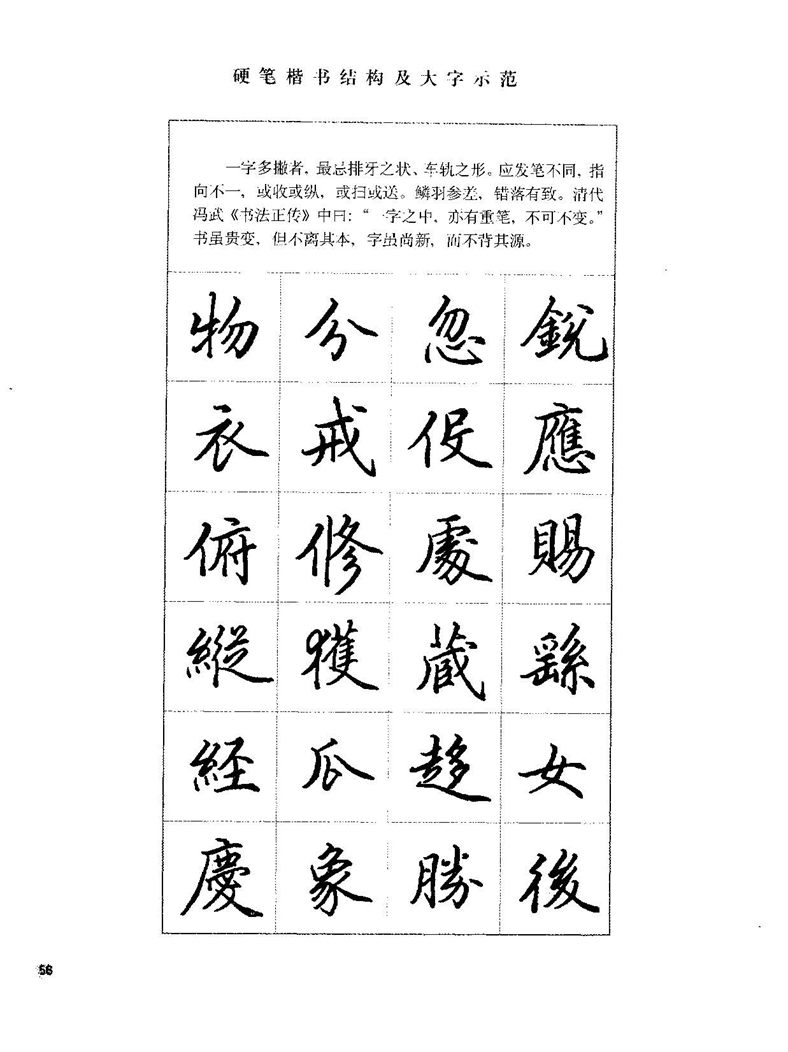 硬笔楷书结构及大字示范
一字多撇者，最忌排牙之状、车轨之形。应发笔不同，指
向不一，或收或纵，或扫或送。鳞羽参差，错落有致。清代
冯武《书法正传》中曰：“一字之中，亦有重笔，不可不变。”
书虽贵变，但不离其本，字虽尚新，而不背其源。
物 分 忽 銳
衣 戒 促 應
俯 修 處 賜
縱 獲 蔵 繇
經 瓜 趍 女
慶 象 勝 後
56